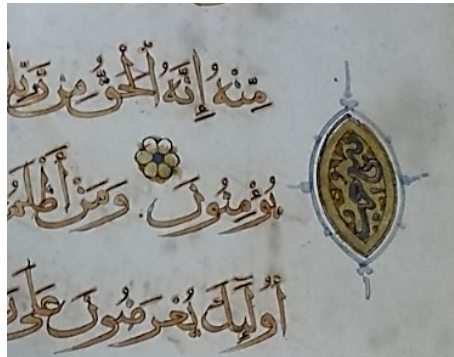 مِّنْهُ إِنَّهُ الْحَقُّ مِن رَّبِّكَ
يُؤْمِنُونَ وَمَنْ أَظْلَمُ
أُولَٰئِكَ يُعْرَضُونَ عَلَىٰ